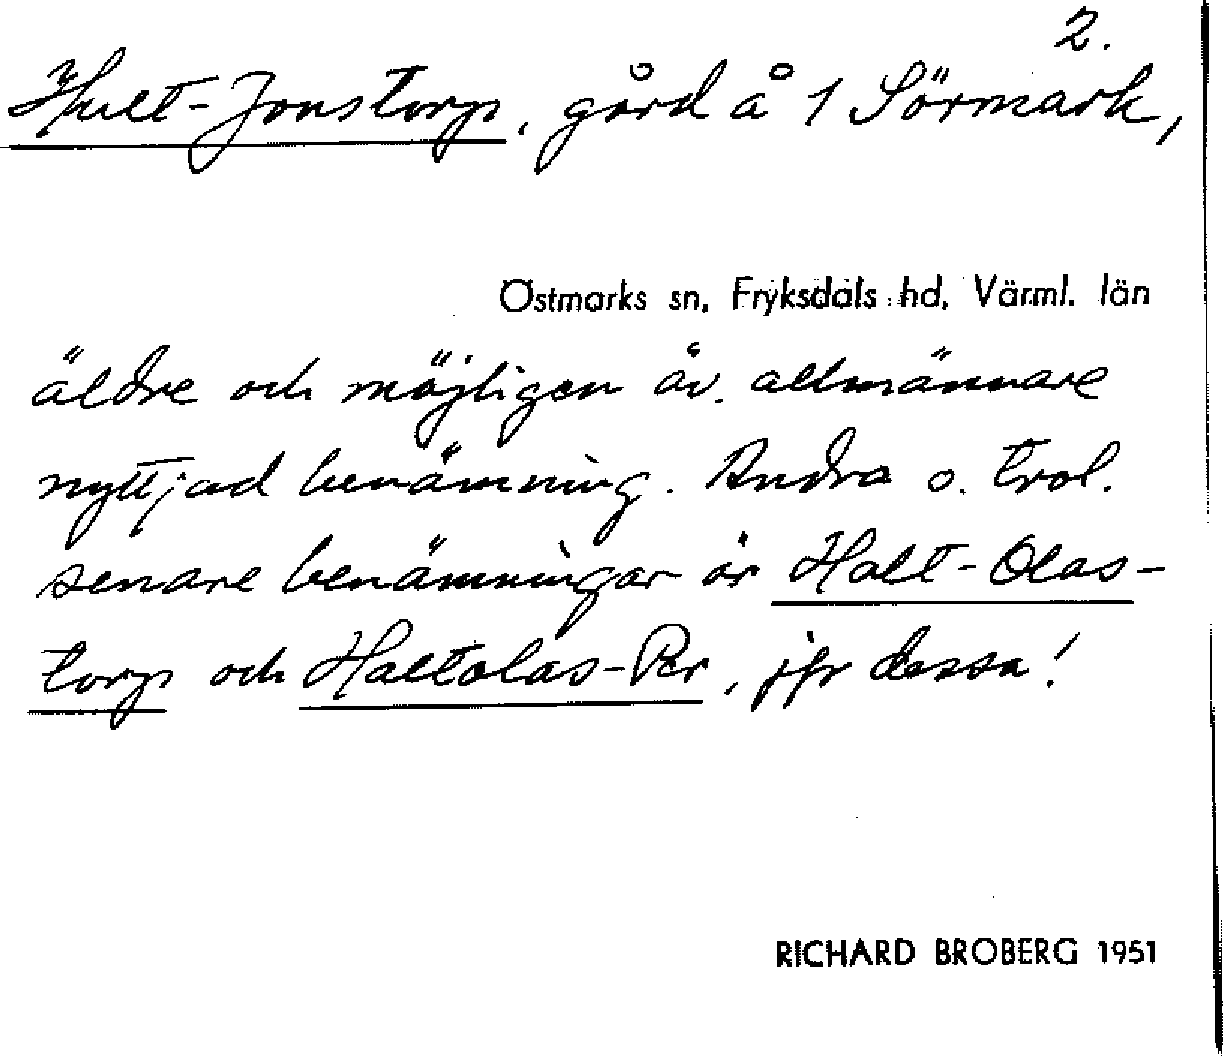 2.
Hult-Jonstorp, gård å 1 Sörmark,
Östmarks sn, Fryksdals hd, Värml. län
äldre och möjligen äv. allmännare
nyttjad benämning. Andra o. trol.
senare benämningar är Halt-Olas-
torp och Haltolas-Per, jfr dessa!
RICHARD BROBERG 1951